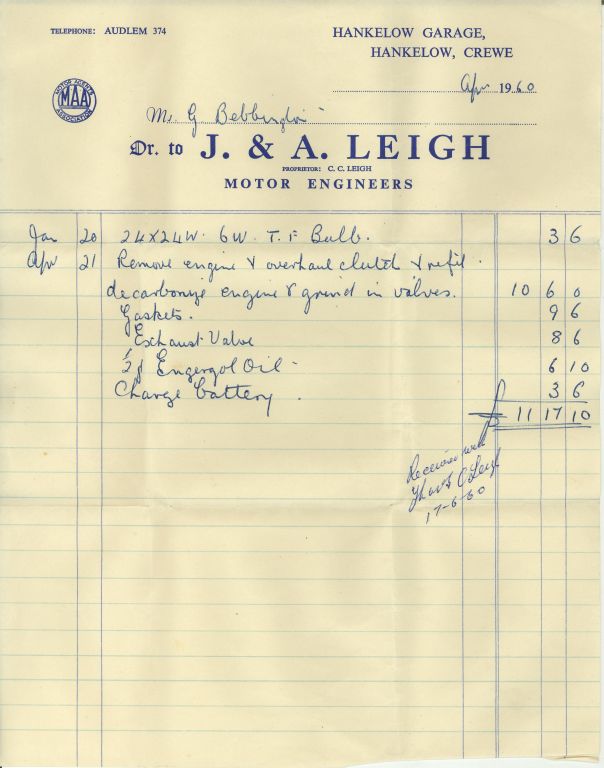 TELEPHONE: AUDLEM 374
HANKELOW GARAGE,
HANKELOW, CREWE
Apr 1960
MOTOR AGENTS
MAA
ASSOCIATION
G Bebbington
Dr. to J. & A. LEIGH
PROPRIETOR: C. C. LEIGH
MOTOR ENGINEERS
Jan 20 24X24W. 6W. T.F Bulb. 3 6
Apr 21 Remove engine & overhaul clutch & refit.
decarbonize engine & grind in valves. 10 6 0
Gaskets. 9 6
Exhaust Valve 8 6
Engergol Oil - 6 10
Charge battery. 3 6
£ 11 17 10
Received with
Thanks C Leigh
17-6-60